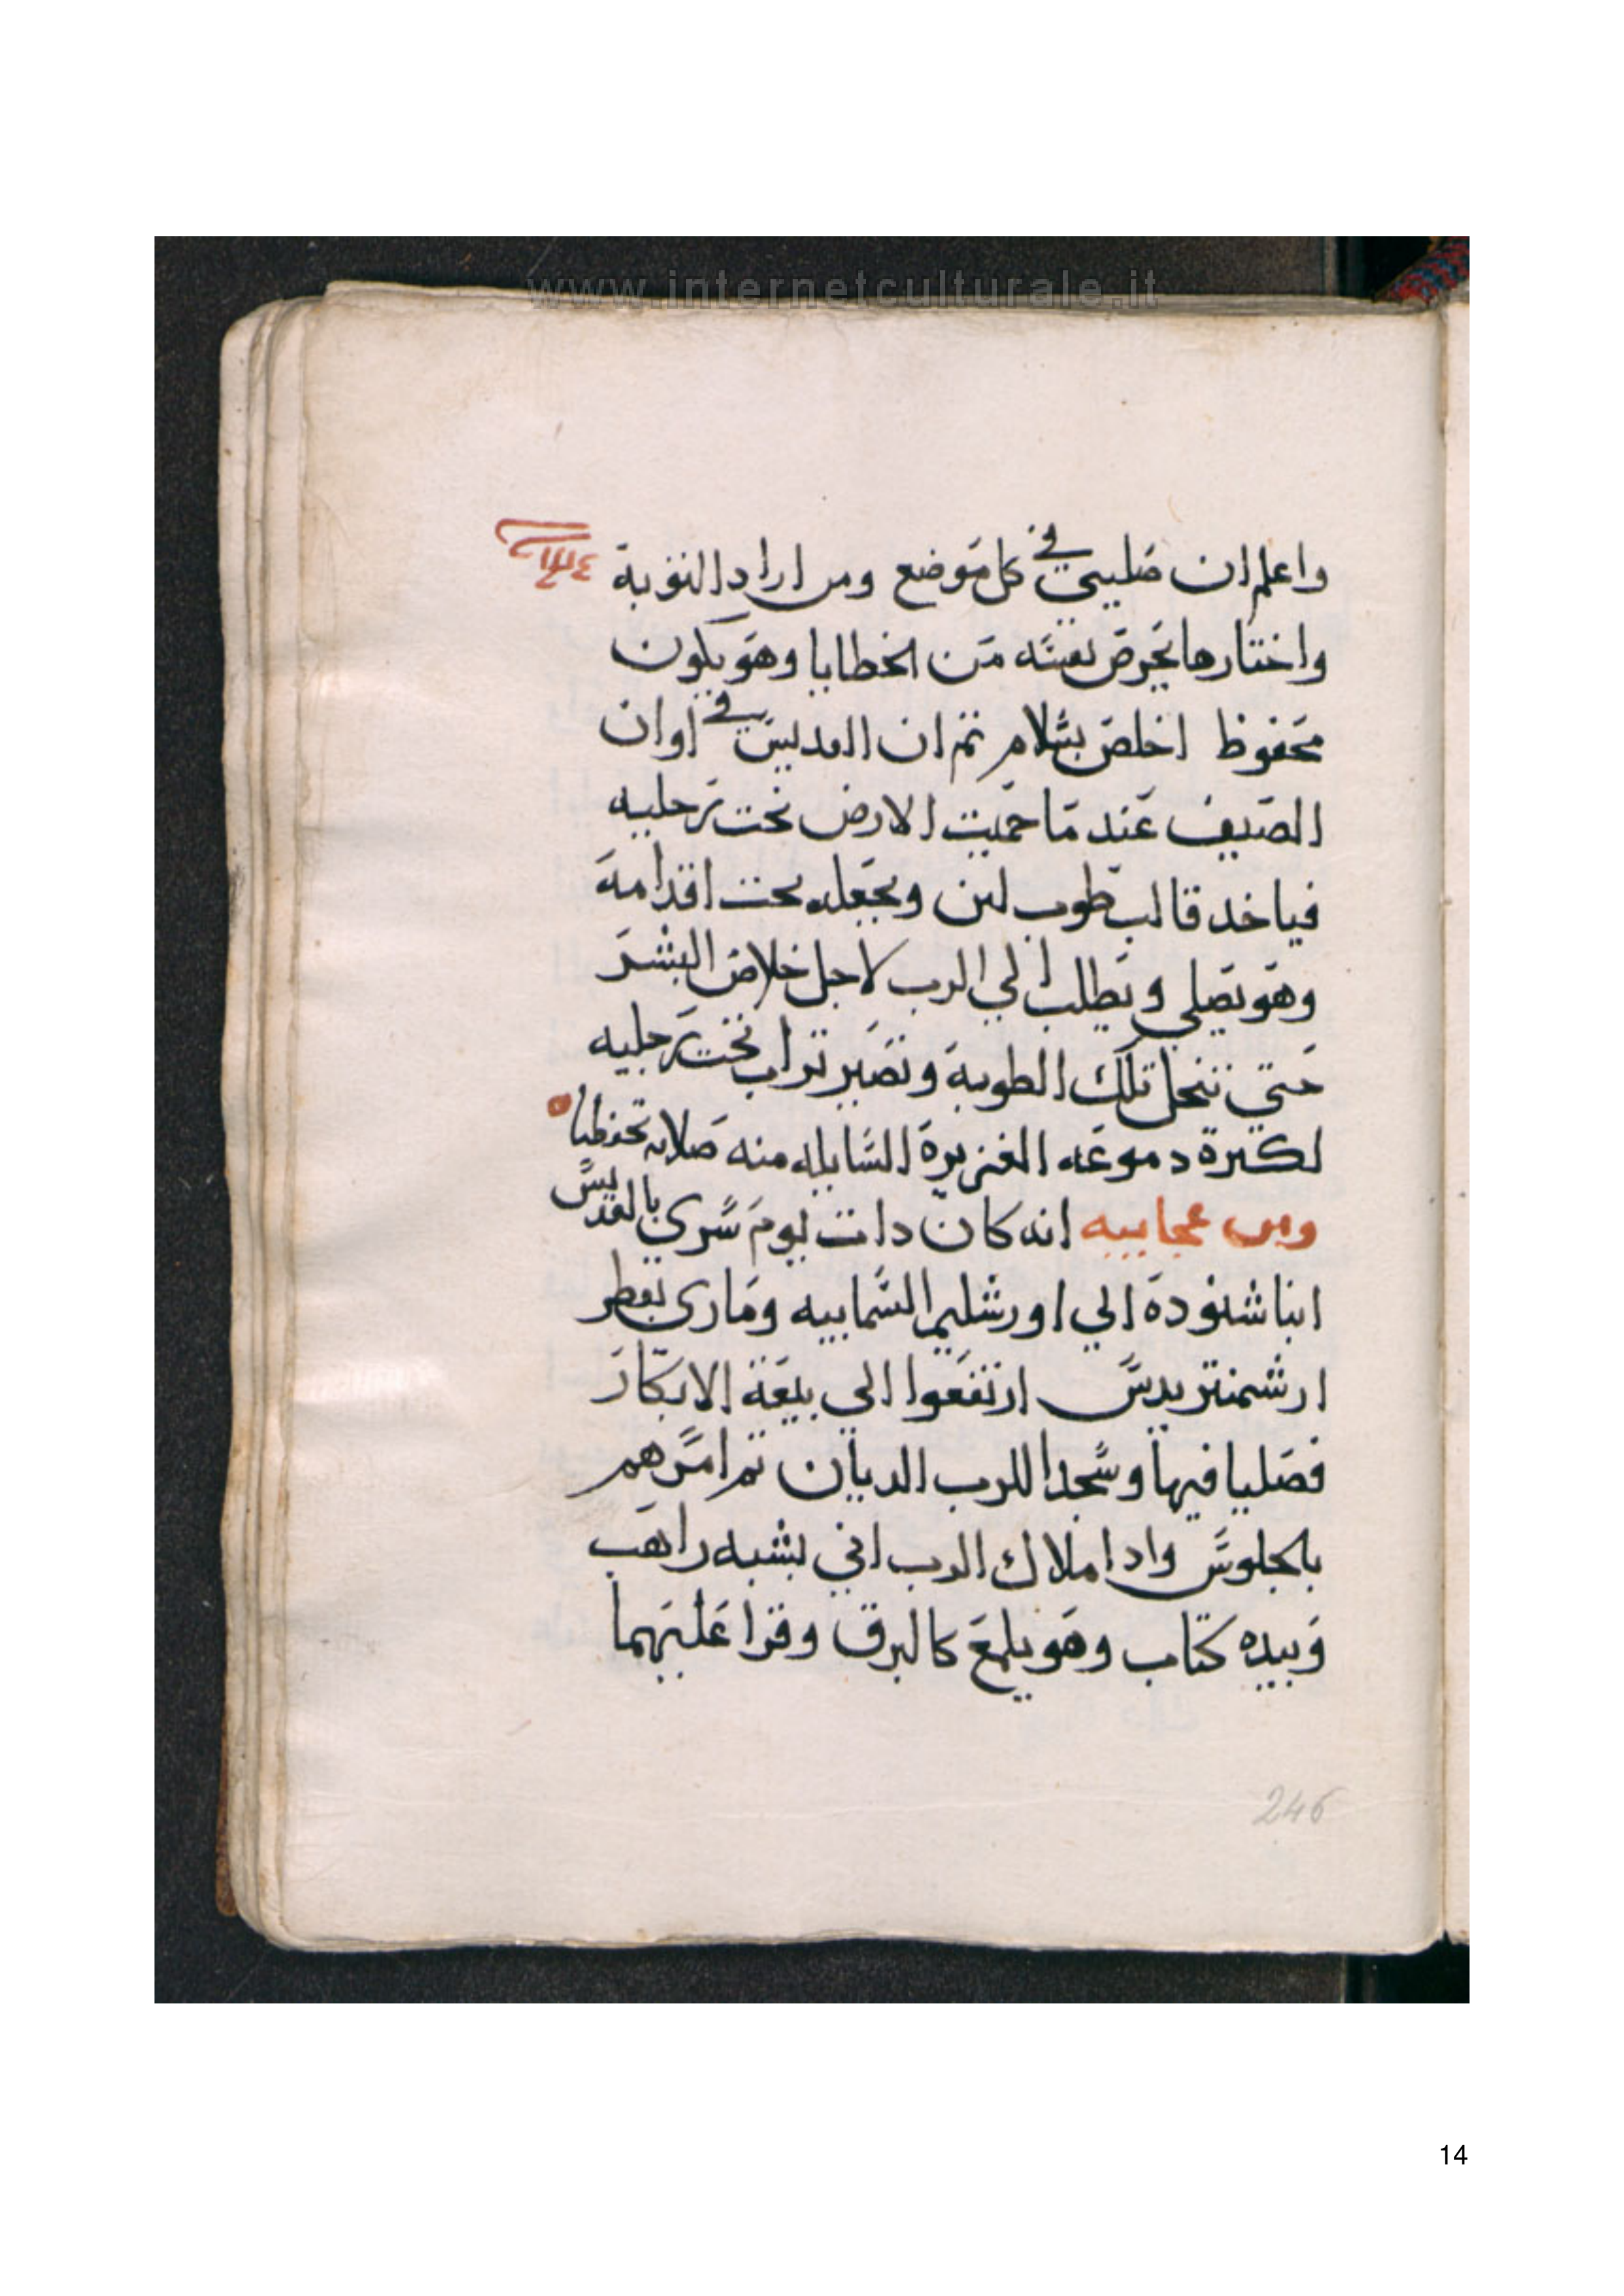 www.internetculturale.it
واعلم ان صليبي في كل موضع ومن اراد التوبة
واختارها يحرص نفسه من الخطايا وهو يكون
محفوظ اخلص بسلام ثم ان القديس في اوان
الصيف عند ما حميت الارض تحت رجليه
فياخد قالب طوب لبن ويجعله تحت اقدامه
وهو يصلي ويطلب الي الرب لاجل خلاص البشر
حتي تنحل تلك الطوبة وتصير تراب تحت رجليه
لكثرة دموعه الغزيرة السايله منه صلاته تحفظنا
ومن عجاييبه انه كان دات يوم سري بالقديس
انبا شنودة الي اورشليم السماييه وماري بقطر
ارشمنتريدس ارتفعوا الي بيعة الابكار
فصليا فيها وسجدا للرب الديان ثم امرهم
بالجلوس وادا ملاك الرب اتي بشبه راهب
وبيده كتاب وهو يلمع كالبرق وقرا عليهما
246
14